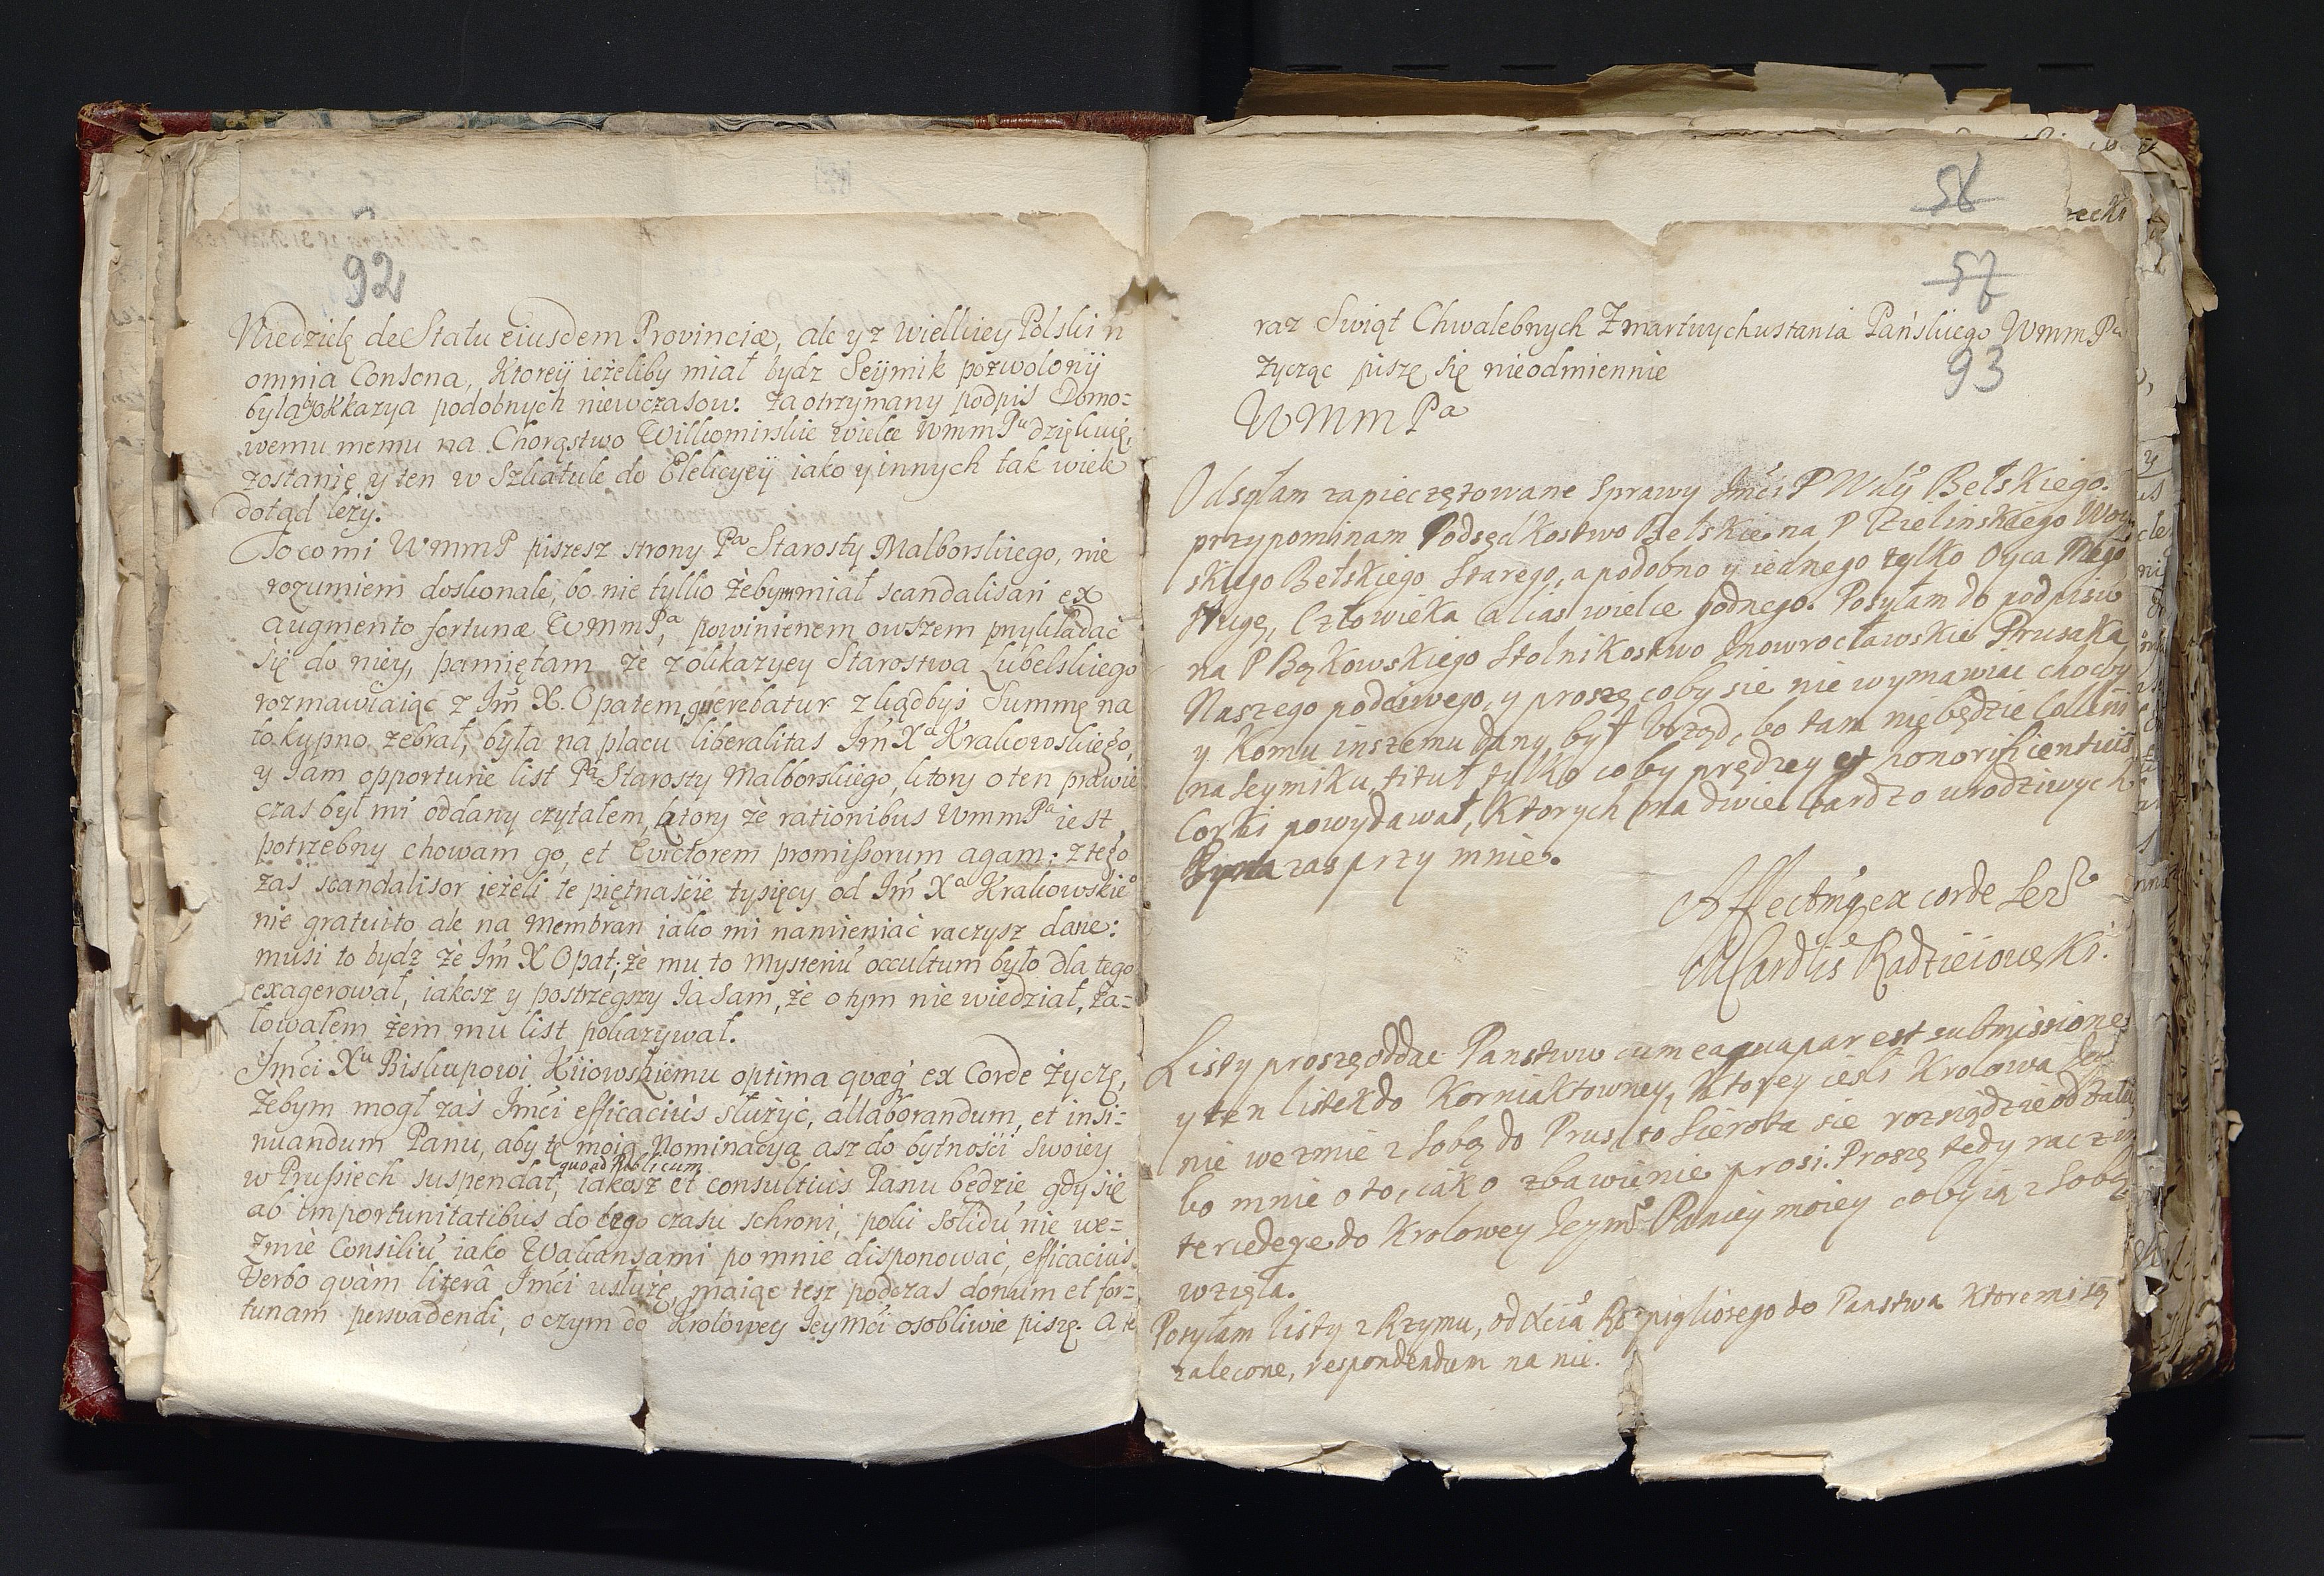 92
Niedzielę de Statu eiusdem Provinciæ, ale y z Wielkiey Polski n
omnia Consona, Ktoreÿ ieżeliby miał bydz Seÿmik pozwolonÿ
byłaby okkazya podobnych niewczasow. Za otrzymany podpis Domo=
wemu memu na Chorąstwo Wilkomirskie wielce WmmPu dziękuię,
zostanie y ten w Szkatule do Elekcyeÿ iako y innych tak wiele
dotąd leży.
To co mi WmmP piszesz strony Pa Starosty Malborskiego, nie
rozumiem doskonale, bo nie tylko żebym miał scandalisari ex
augmento fortunæ WmmPa, powinienem owszem przykładać
się do niey, pamiętam że z okkazyey Starostwa Lubelskiego
rozmawiaiąc z Im X. Opatem, querebatur zkądbyś Summę na
to kupno zebrał, była na placu liberalitas Im Xa Krakowskiego,
y Iam opportune list Pa Starosty Malborskiego, ktory o ten prawie
czas był mi oddany czytałem, ktory że rationibus WmmPa iest
potrzebny chowam go, et Evictorem promissorum agam: z tego
zas scandalisor ieżeli te piętnascie tysięcy od Im Xa Krakowskieo
nie gratuito ale na Membran iako mi namieniać raczysz dane:
musi to bydz że Im X Opat; że mu to Mysteriu occultum było dla tego
exagerował, iakosz y postrzegszy Ia Sam, że o tym nie wiedział, ża=
łowałem żem mu list pokazywał.
Imci Xu Biskupowi Kiiowskiemu optima quæq ex Corde Życzę,
żebym mogł zaś Imci efficacius służyć, allaborandum, et insi=
nuandum Panu, aby tę moią Nominacyą asz do bytności swoiey
quoad Publicum
w Prussiech suspendat, iakosz et consultius Panu będzie gdy się
ab importunitatibus do tego czasu schroni, poki Solidu nie we=
zmie Consiliu iako Wakansami po mnie disponować, efficacius
Verbo quàm literâ Imci usłużę, maiąc tesz podczas donum et for=
tunam persvadendi, o czym do Krolowey Ieymci osobliwie piszę. A te
58
57
93
raz Swiąt Chwalebnych Zmartwychustania Pańskiego WmmPu
życząc piszę się nieodmiennie
WMMPa
Odsyłam zapieczętowane Sprawy Imci P Wdy Bełskiego.
przypominam Podsędkostwo Bełskie na P Zielinskiego Woy
skiego Bełskiego Starego, a podobno y iednego tylko Oyca Mego
sługę, Człowieka alias wielce godnego. Posyłam do podpisu
na P Bąkowskiego Stolnikostwo Inowrocławskie Prusaka
Naszego poćciwego, y proszę coby sie nie wymawiac choćby
y Komu inszemu dany był Urząd, bo tam nie będzie
na Seymiku, tituł tylko coby prędzey et honorificentius
Corki powydawał, Ktorych ma dwie bardzo urodziwych
zas przy mnie.
ex corde
MCardlis Radzieiowski.
Listy proszę oddac Panstwu cum ea qua par est submissione
y ten listek do Korniaktowney, Ktorey iesli Krolowa Iey
nie wezmie z Sobą do Prus, to Sierota sie rozsiądzie od żalu,
bo mnie o to, iako zbawienie prosi. Proszę tedy racz
intercedere do Krolowey Ieymci Paniey moiey coby ią z Sobą
wzięła.
Posyłam listy z Rzymu, od Xcia Rospigliosego do Panstwa Ktore mi są
zalecone, respondendum na nie.